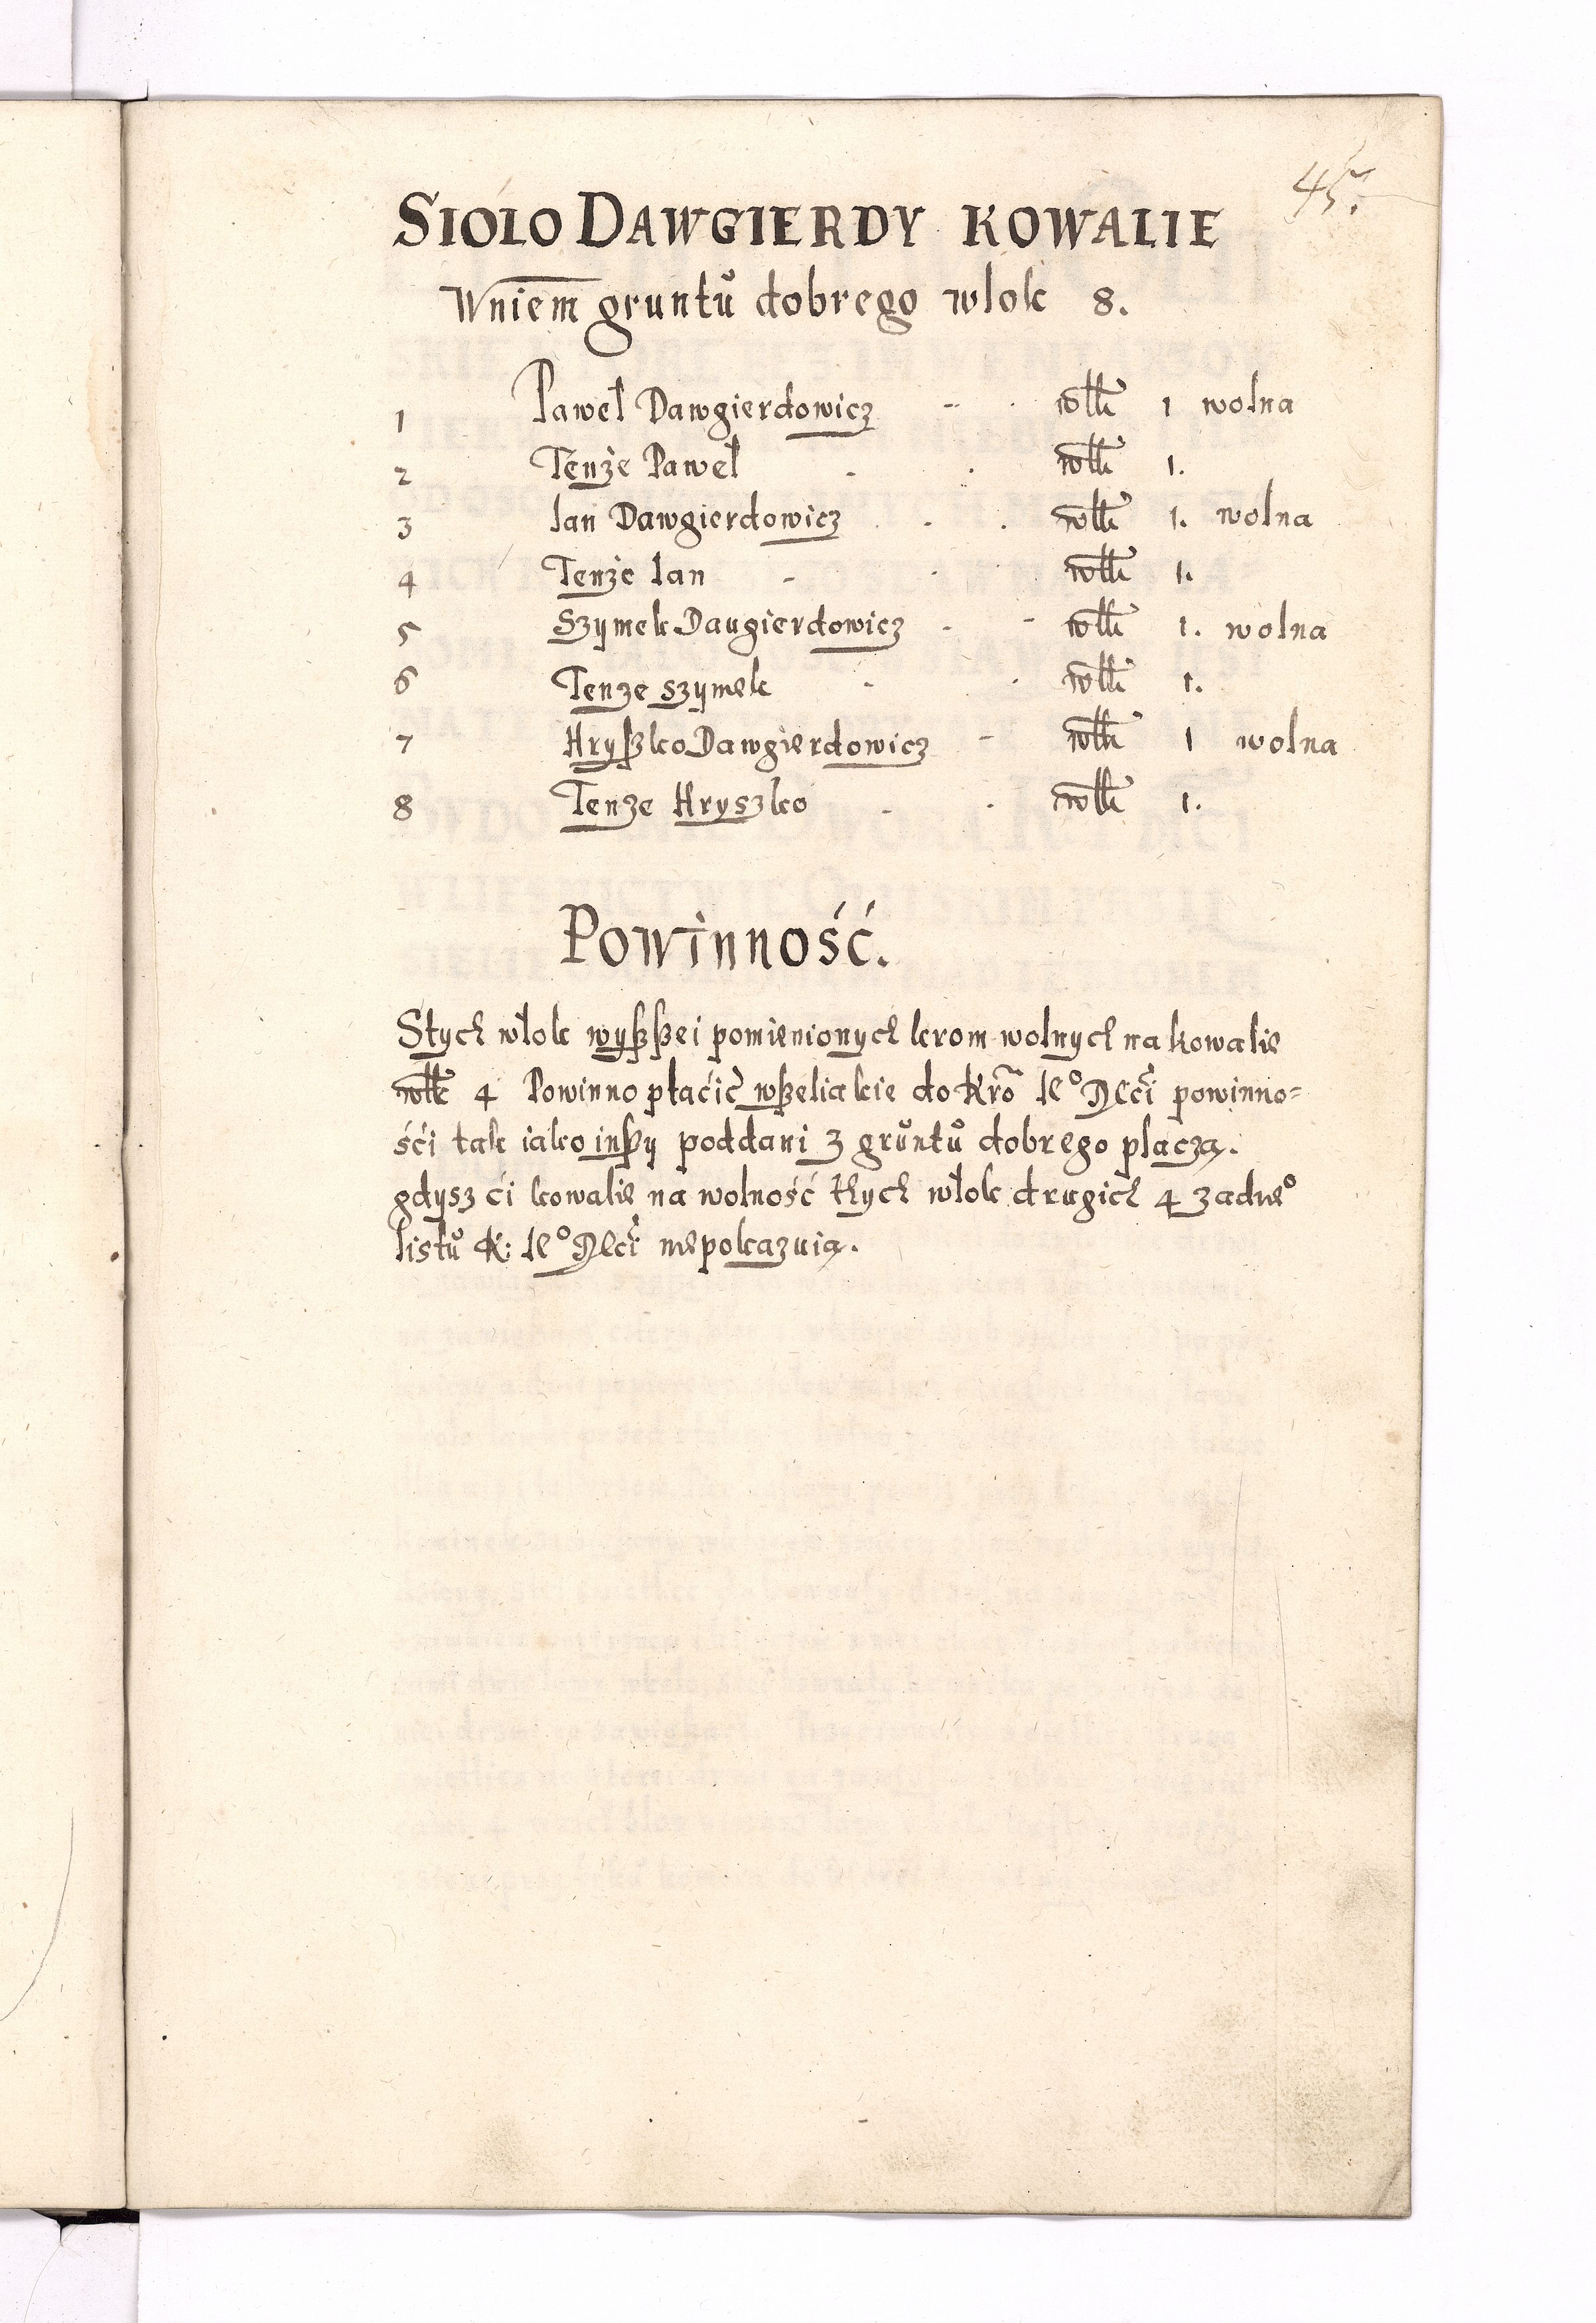 45.
SIOLO DAWGIERDY KOWALIE
Wniem gruntů dobrego wlok 8.
1 Paweł Dawgierdowicz - . włk 1 wolna
2 Tenże Paweł . . włk 1.
3 Ian Dawgierdowicz . . włk 1. wolna
4 Tenże Ian - . włk 1.
5 Szymek Daugierdowicz - - włk 1. wolna
6 Tenze szymek - . włk 1.
7 HryßkoDawgierdowicz - włk 1 wolna
8 Tenze Hryszko . . włk 1.
Powinność.
Stych włok wyßßei pomienionych krom wolnych na kowalie
włk 4 Powinno płaćić wßeliakie do Kro Ieº Mći powinno=
śći tak iako inßy poddani z grůntů dobrego placzą.
gdysz ći kowalie na wolność tych włok drugich 4 zadneº
listů K: Ieº Mći niepokazuią.